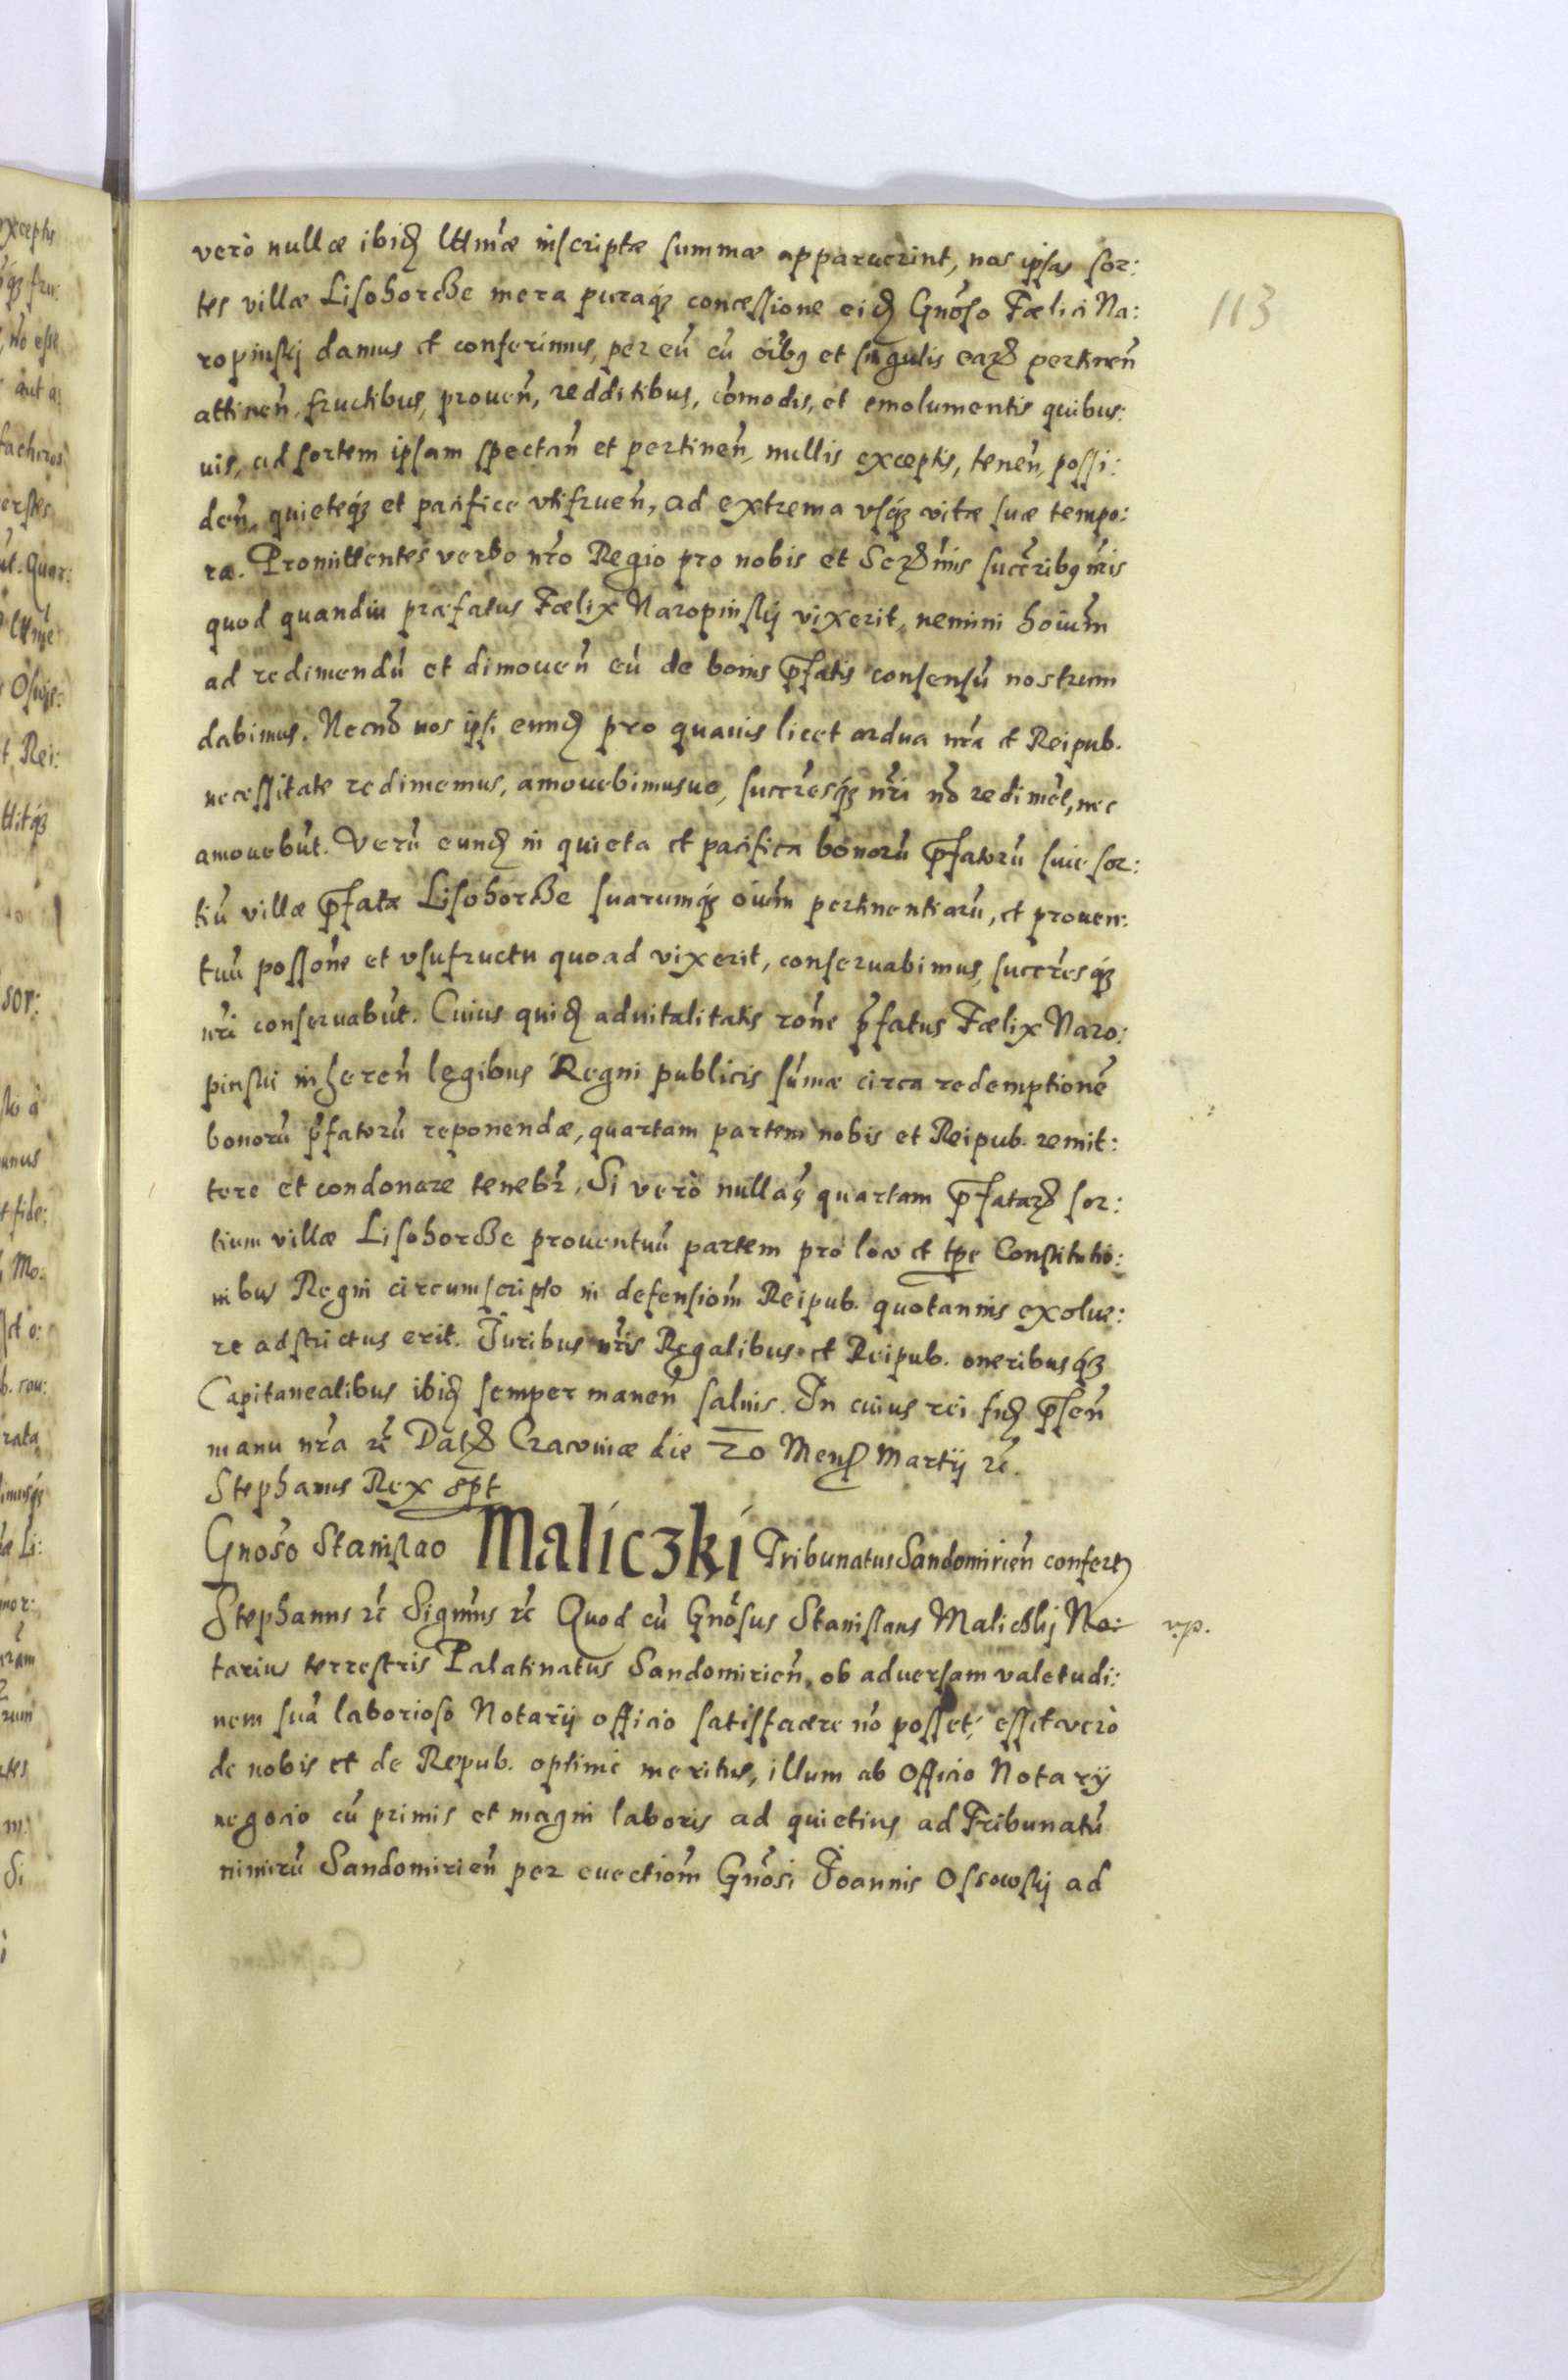 verò nullæ ibidẽ lttimæ inscriptæ summæ apparuerint, nos ipsas sor:
tes villæ Lisohorcze mera puraqȝ concessione eidẽ Gnõso Fælici Na:
ropinskij damus et conferimus, per eũ cũ oĩbꝯ et singulis earũ pertineñ
attineñ, fructibus, proueñ, redditibus, cõmodis, et emolumentis quibus:
uis, ad sortem ipsam spectañ et pertineñ, nullis exceptis, teneñ, possi:
deñ, quieteqȝ et pacifice vtifrueñ, ad extrema vsqȝ vitæ suæ tempo:
ra. Promittentes verbo nr̃o Regio pro nobis et Serẽmis succr̃ibꝯ nr̃is
quod quandiu præfatus Fælix Naropinskij vixerit, nemini hoiũm
ad redimendũ et dimoueñ eũ de bonis p̃fatis consensũ nostrum
dabimus. Necnõ nos ipsi eundẽ pro quauis licet ardua nr̃a et Reipub.
necessitate redimemus, amouebimusue, succr̃esqȝ nr̃i nõ rediment, nec
amouebũt. Verũ eundẽ in quieta et pacifica bonorũ p̃fatorũ siue sor:
tiũ villæ p̃fatæ Lisohorcze suarumqȝ oiũm pertinentiarũ, et prouen:
tuũ possõne et vsufructu quoad vixerit, conseruabimus, succr̃esqȝ
nr̃i conseruabũt. Cuius quidẽ aduitalitatis rõne p̃fatus Fælix Naro:
pinski inhæreñ legibus Regni publicis sũmæ circa redemptionẽ
bonorũ p̃fatorũ reponendæ, quartam partem nobis et Reipub. remit:
tere et condonare tenebr̃. Si verò nulla, quartam p̃fatarũ sor:
tium villæ Lisohorcze prouentuũ partem pro loco et tp̃e Constitutio:
nibus Regni circumscripto in defensiom̃ Reipub. quotannis exolue:
re adstrictus erit. Juribus nr̃is Regalibus et Reipub. oneribusqȝ
Capitanealibus ibidẽ semper maneñ saluis. In cuius rei fidẽ p̃señ
manu nr̃a rc̃ Datũ Cracouiæ die 20 Mens̃ Martij rc̃.
Stephanus Rex spt
Gnõso Stanislao Maliczki Tribunatus Sandomirieñ confertr̃
Stephanus rc̃ Signm̃s rc̃ Quod cũ Gnõsus Stanislaus Maliczkij No: vp.
tarius terrestris Palatinatus Sandomirieñ, ob aduersam valetudi:
nem suã laborioso Notarij officio satisfacere nõ posset, esset verò
de nobis et de Repub. optime meritus, illum ab Officio Notarij
negocio cũ primis et magni laboris ad quietius ad Tribunatũ
nimirũ Sandomirieñ per euectiom̃ Gnõsi Joannis Ossowskij ad
113